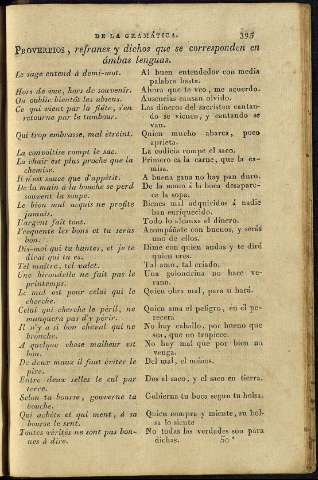 DE LA GRAMÁTICA. 393
PROVERBIOS, refranes y dichos que se corresponden en
ámbas lenguas.
Le sage entend à demi-mot. Al buen entendedor con media
palabra basta.
Hors de vue, hors de souvenir. Ahora que te veo, me acuerdo.
On oublie bientôt les absens. Ausencias causan olvido.
Ce qui vient par la flûte, s'en Los dineros del sacristan cantan-
retourne par le tambour. do se vienen, y cantando se
van.
Qui trop embrasse, mal étreint. Quien mucho abarca, poco
aprieta.
La convoitise rompt le sac. La codicia rompe el saco.
La chair est plus proche que la Primero es la carne, que la ca-
chemise. misa.
Il n'est sauce que d'appétit. A buena gana no hay pan duro.
De la main à la bouche se perd De la mano á la boca desapare-
souvent la soupe. ce la sopa.
Le bien mal acquis ne profite Bienes mal adquiridos á nadie
jamais. han enriquecido.
L'argent fait tout. Todo lo alcanza el dinero.
Fréquente les bons et tu seras Acompáñate con buenos, y serás
bon. uno de ellos.
Dis-moi qui tu hantes, et je te Dime con quien andas y te diré
dirai qui tu es. quien eres.
Tel maître, tel valet. Tal amo, tal criado.
Une hirondelle ne fait pas le Una golondrina no hace ve-
printemps. rano.
Le mal est pour celui qui le Quien obra mal, para sí hará.
cherche.
Celui qui cherche le péril, ne Quien ama el peligro, en él pe-
manquera pas d'y périr. recerá.
Il n'y a si bon cheval qui ne No hay caballo, por bueno que
bronche. sea, que no tropiece.
A quelque chose malheur est No hay mal que por bien no
bon. venga.
De deux maux il faut éviter le Del mal, el ménos.
pire.
Entre deux selles le cul par Dos el saco, y el saco en tierra.
terre.
Selon ta bourse, gouverne ta Gobierna tu boca segun tu bolsa.
bouche.
Qui achète et qui ment, á sa Quien compra y miente, su bol-
bourse le sent. sa lo siente
Toutes vérités ne sont pas bon- No todas las verdades son para
nes à dire. dichas. 50*